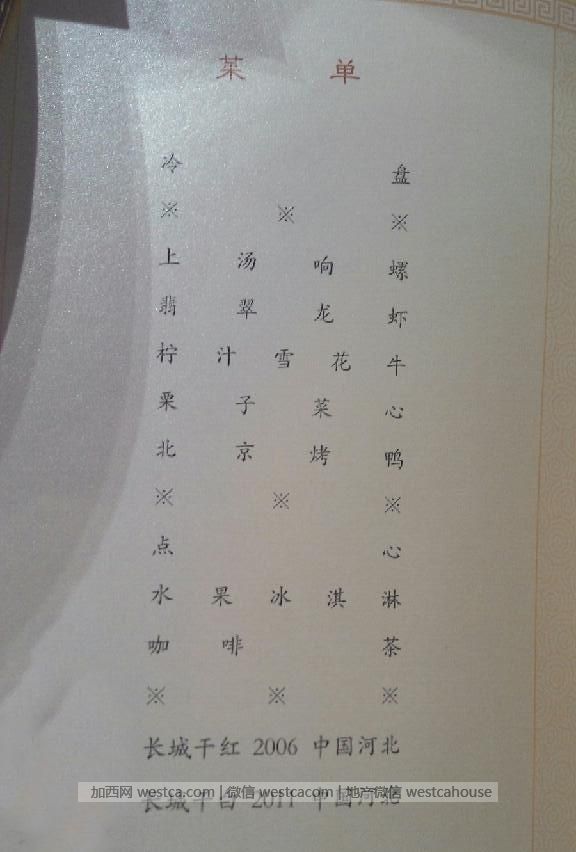 菜 单
冷 盘
※ ※ ※
上 汤 响 螺
翡 翠 龙 虾
柠 汁 雪 花 牛
栗 子 菜 心
北 京 烤 鸭
※ ※ ※
点 心
水 果 冰 淇 淋
咖 啡 茶
※ ※ ※
长城干红 2006 中国河北
长城干白 2011 中国河北
加西网 westca.com | 微信 westcacom | 地产微信 westcahouse